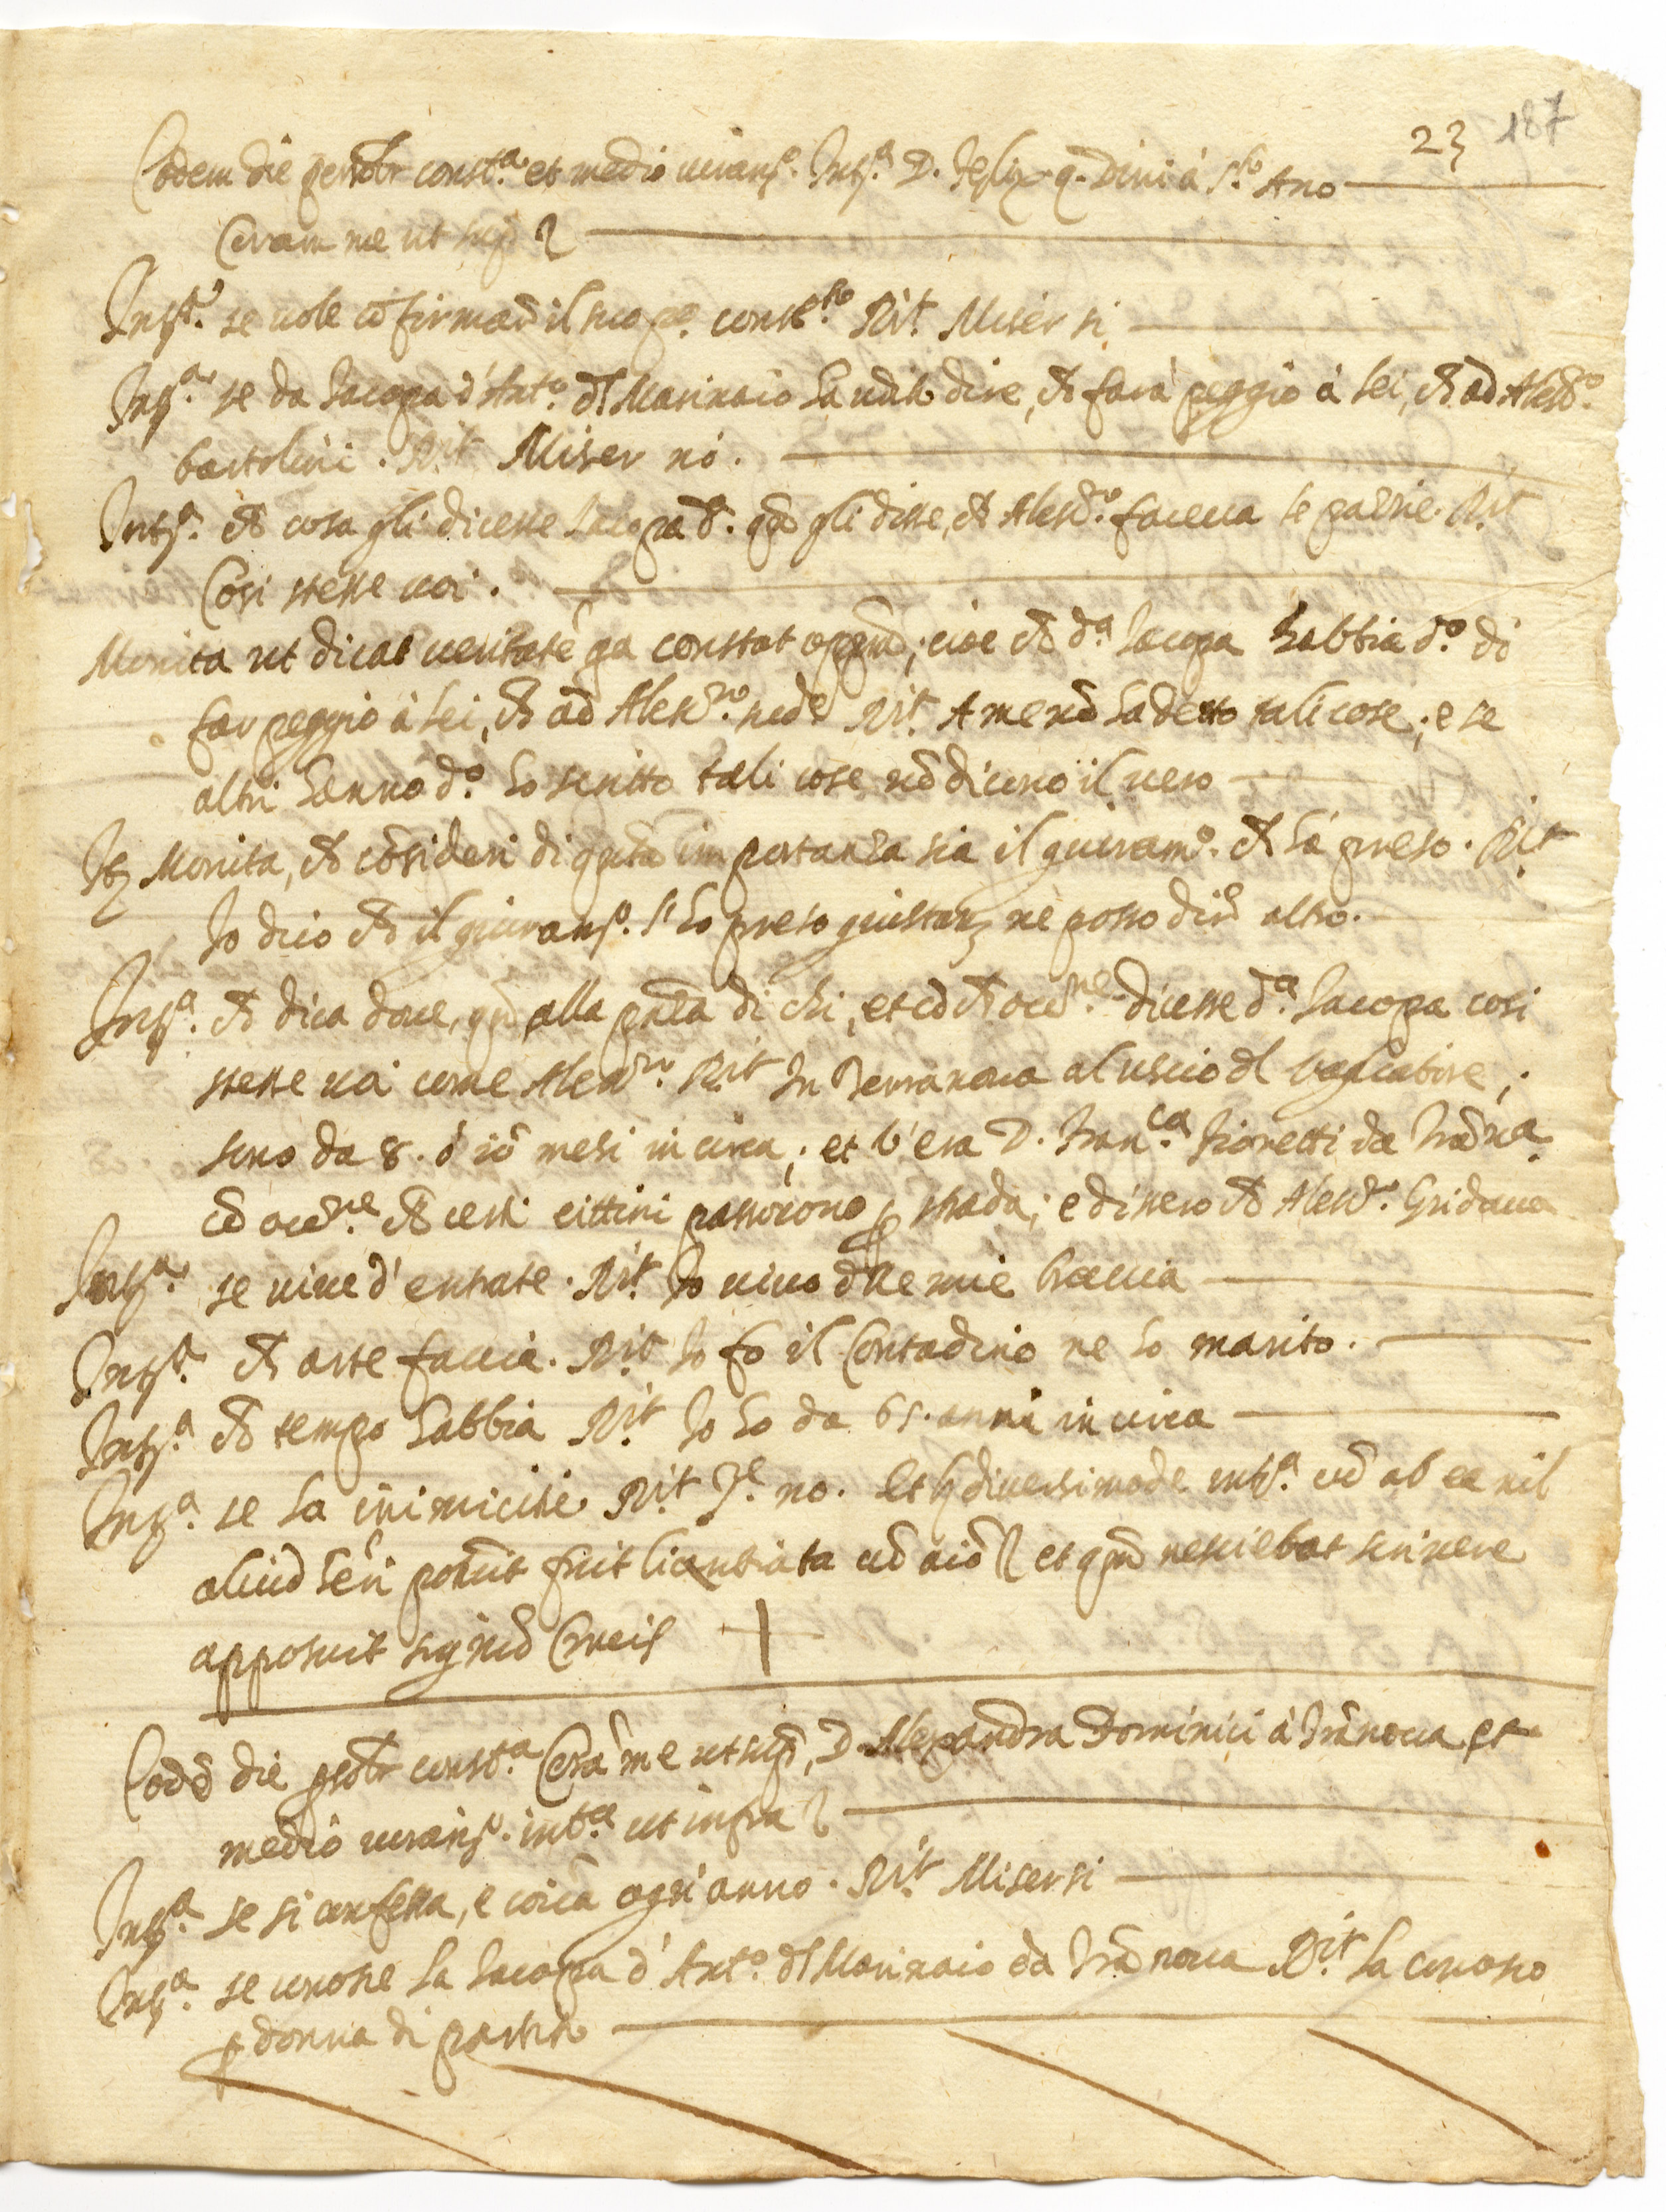 23 187
Eodem die personaliter const.a et medio iuram.o Int.a D. Felix q. Dini à S.to Ano
Coram me ut sup.
Int.a se vole cõfirmare il suo p.o const.to R.it Miser si
Int.a se da Iacopa d'Ant.o del Marinaio ha udito dire, ch farà peggio à lei, ch ad Aless.o
bartolini. R.it Miser nò.
Int.a ch cosa gli dicesse Iacopa d.a q.do gli disse, ch Aless.o faceva le pazzie. R.it
Cosi stesse voi.
Monita ut dicat veritatẽ q.a constat oppm; cioe ch d.a Iacopa habbia d.o di
far peggio à lei, ch ad Aless.ro R.it A me nõ ha detto tali cose; e se
altri hanno d.o ho scritto tali cose nõ dicono il vero
It Monita, ch cõsideri di q.ta importanza sia il giuram.o ch hà preso. R.it
Io dico ch il giuram.o l'ho preso giustam nè posso dire altro.
Int.a ch dica dove, q.do alla pñza di chi, et cõ ch occ.ne dicesse d.a Iacopa cosi
stesse voi come Aless.ro R.it In Terranova al uscio del
sono da 8. ò 10 mesi in circa; et v'era D. Fran.ca Fioretti da Trãn.a
cõ occ.ne ch certi cittini passorono p strada; e dissero ch Aless.o Gridava
Int.a se vive d'entrate. R.it Io vivo delle mie braccia
Int.a ch arte faccia. R.it Io fo il Contadino ne ho marito.
Int.a ch tempo habbia R.it Io ho da 65. anni in circa
Int.a se ha inimicitie R.it no. Et diversimode int.a cũ ab ea nil
aliud hẽri potuit fuit licantiata cũ aio et q.m nesciebat scrivere
apposuit signũ Crucis +
Eodẽ die psõlr const.a Corã me ut sup, D. Alexandra Dominici à Trãnova et
medio iuram.o int.a ut infra
Int.a se si confessa, e coica ogni anno. R.it Miser si
Int.a se conosce la Iacopa d'Ant.o del Marinaio da Trãnova R.it La conosco
p donna di partito